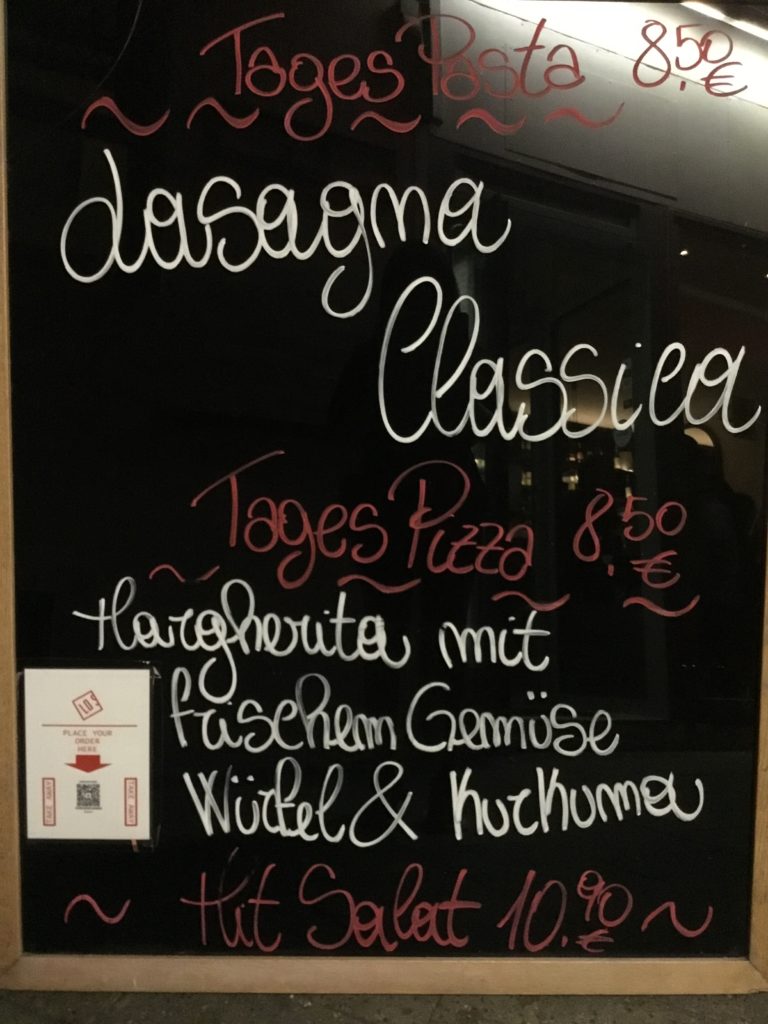 Tages Pasta 8.50 €
Lasagna
Classica
Tages Pizza 8.50 €
Margherita mit
frischem Gemüse
Würfel & Kurkuma
Mit Salat 10.90 €
LOS
PLACE YOUR
ORDER
HERE
TAKE AWAY